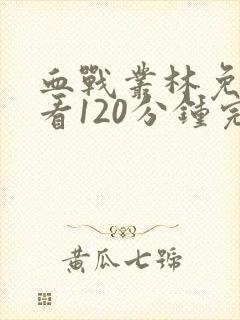 血戰叢林免
看120分鍾完
黃瓜七號